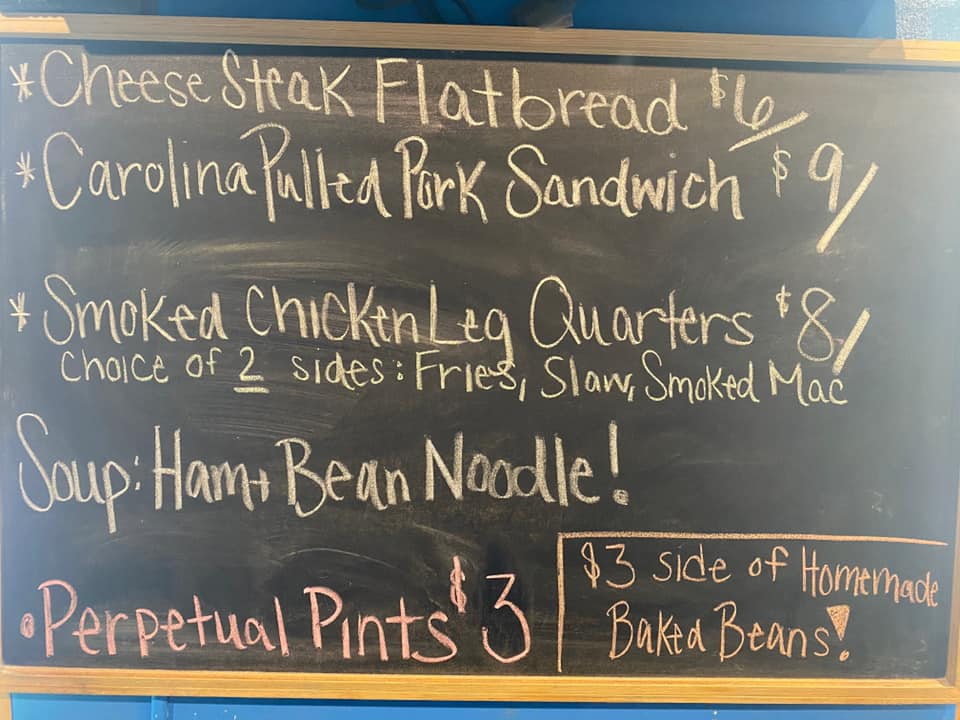 * Cheese Steak Flatbread $6/
* Carolina Pulled Pork Sandwich $9/
* Smoked Chicken Leg Quarters $8/
Choice of 2 sides: Fries, Slaw, Smoked Mac
Soup: Ham + Bean Noodle!
• Perpetual Pints $3
$3 side of Homemade
Baked Beans!